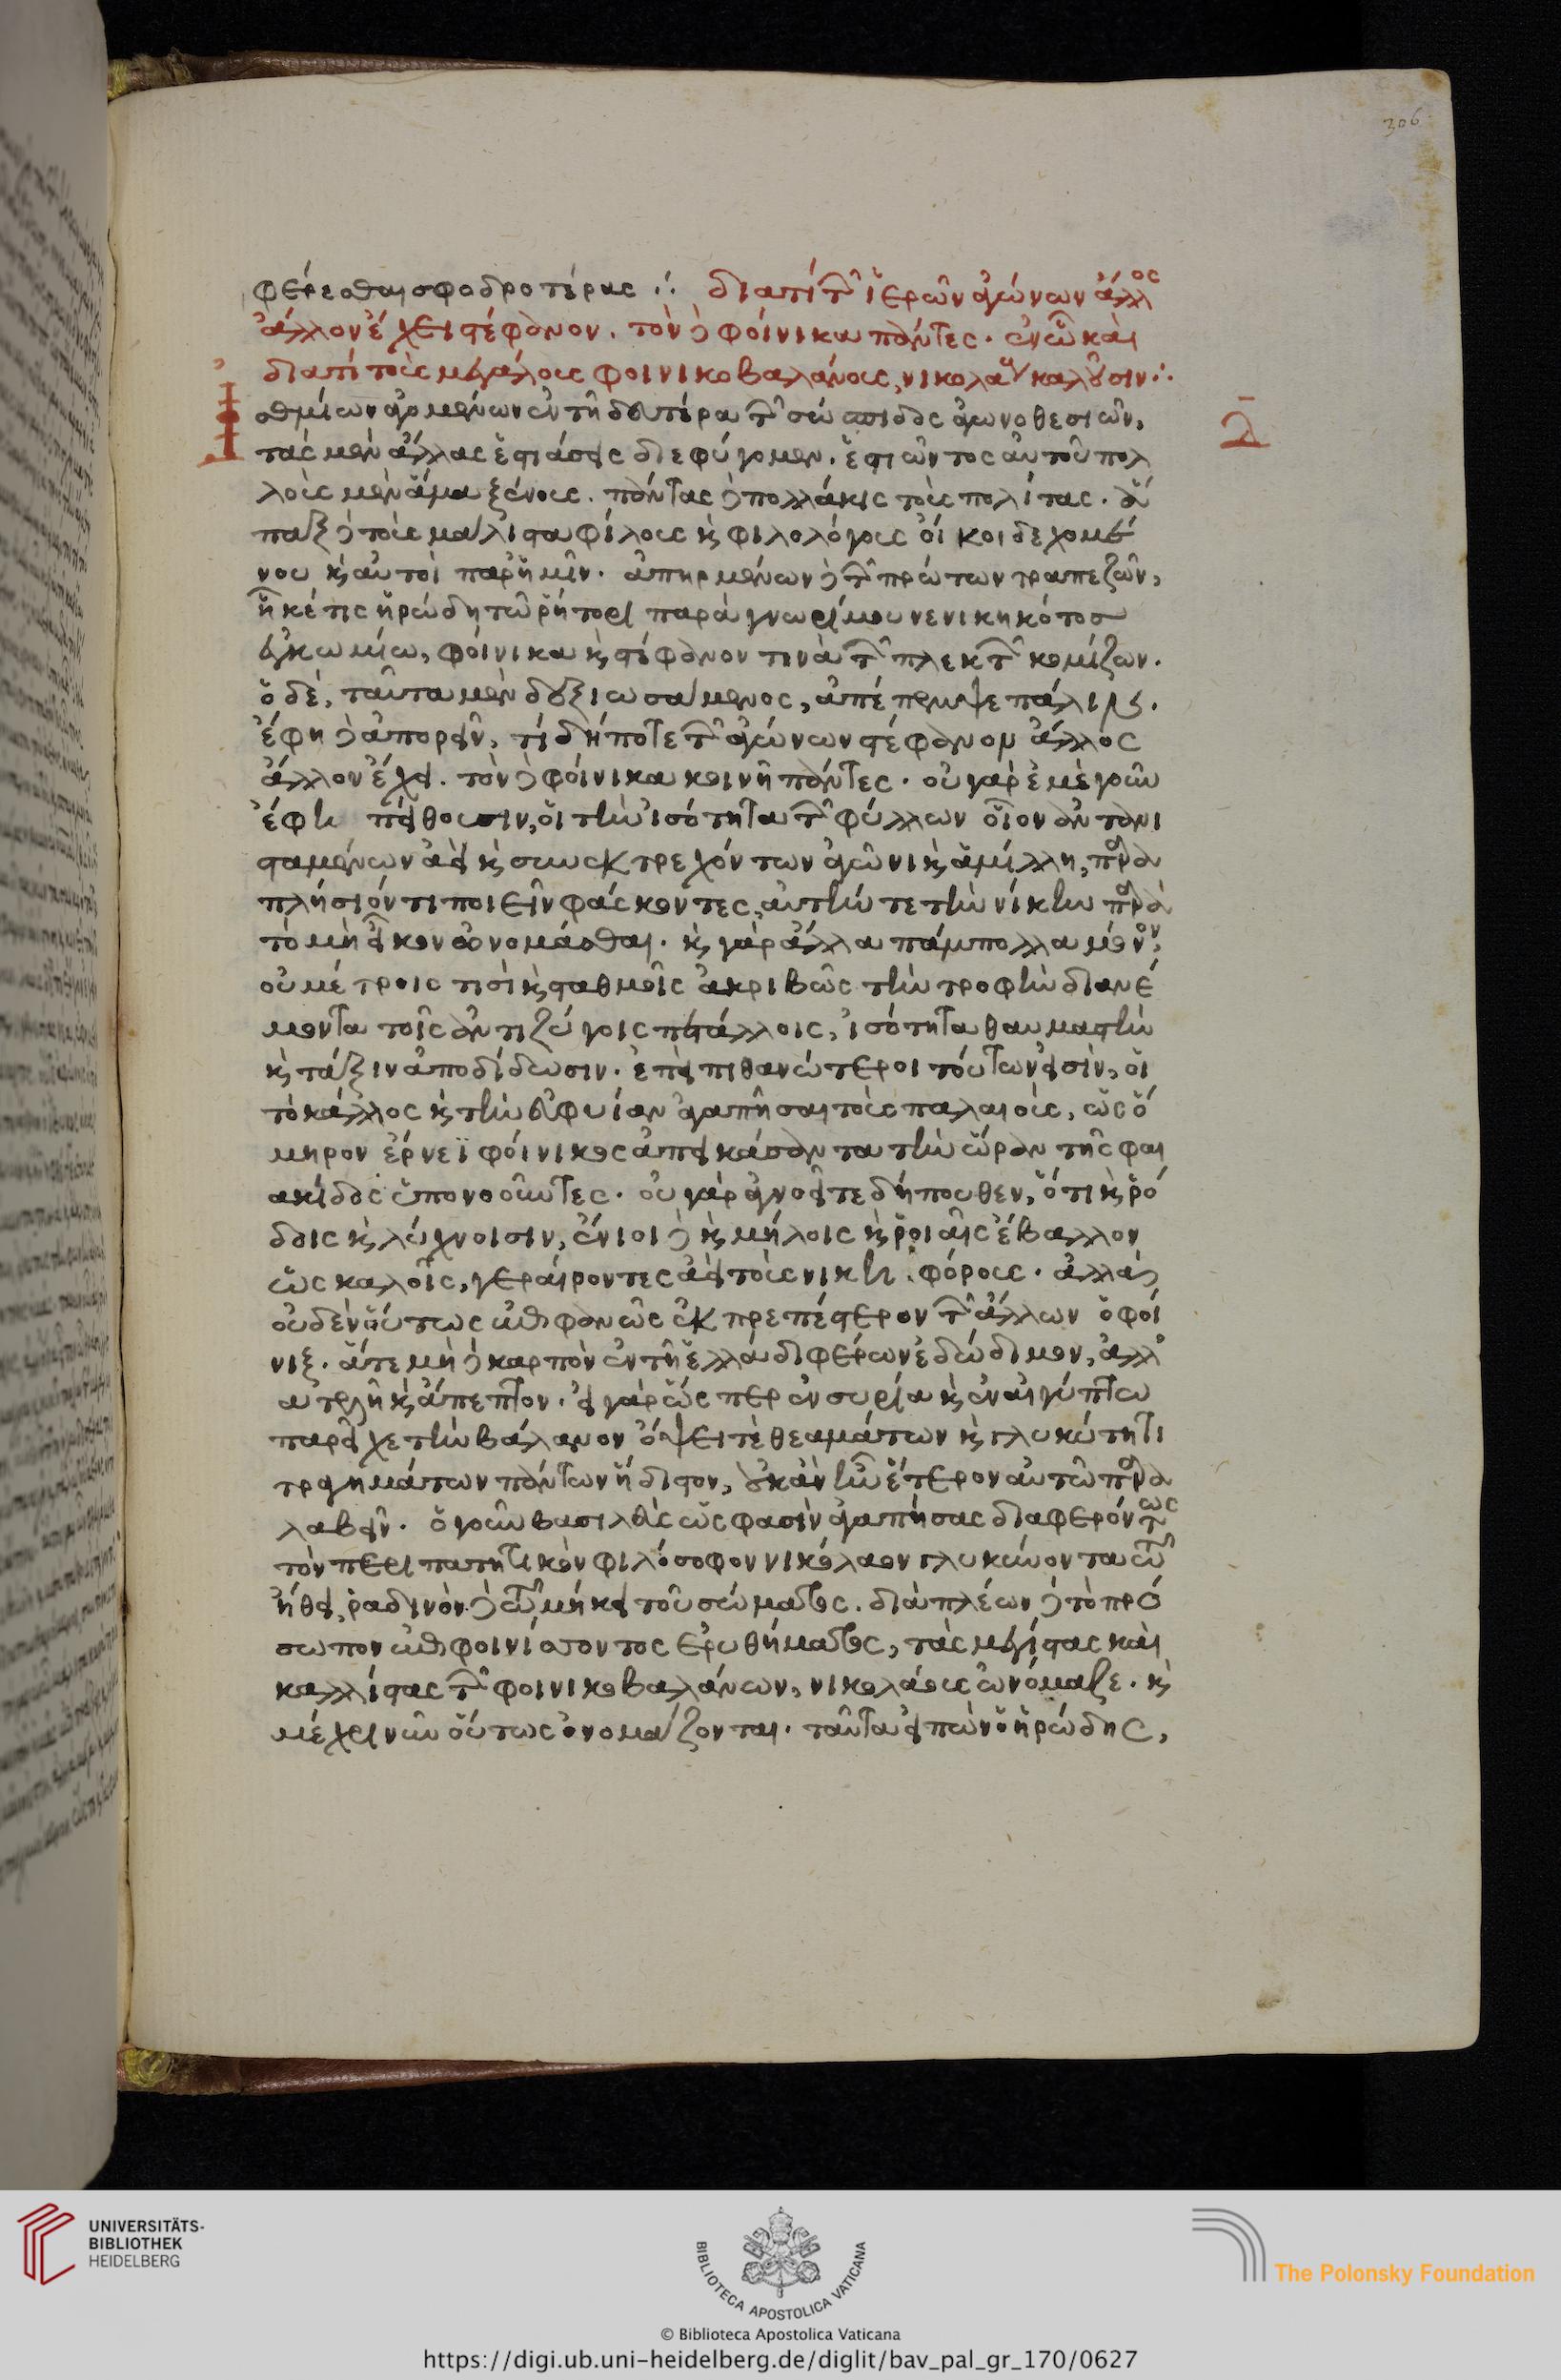 306
φέρεσθαι σφοδροτέρας ⁘ διατί τῶν ἱερῶν ἀγώνων ἄλλος
ἄλλον ἔχει στέφανον. τὸν δὲ φοίνικα πάντες. ἐν ᾧ καὶ
διατί τοὺς μεγάλους φοινικοβαλάνους, νικολάους καλοῦσιν ⁘
Ἰσθμίων ἀγομένων ἐν τῇ δευτέρα τῶν σωσπιδος ἀγωνοθεσιῶν,
τὰς μὲν ἄλλας ἑστιάσεις διεφύγομεν. ἑστιῶντος αὐτοῦ πολ
λοὺς μὲν ἅμα ξένους. πάντας δὲ πολλάκις τοὺς πολίτας. ἅ
παξ δὲ τοὺς μάλιστα φίλους καὶ φιλολόγους οἴκοι δεχομέ
νου καὶ αὐτοὶ παρῆμεν. ἀπηρμένων δὲ τῶν πρώτων τραπεζῶν,
ἧκέ τις ἡρώδη τῶ ῥήτορι παρὰ γνωρίμου νενικηκότος
ἐγκωμίω, φοίνικα καὶ στέφανον τινὰ τῶν πλεκτῶν κομίζων.
ὁ δὲ, ταῦτα μὲν δεξιωσάμενος, ἀπέπεμψε πάλιν.
ἔφη δὲ ἀπορεῖν, τί δήποτε τῶν ἀγώνων στέφανον ἄλλος
ἄλλον ἔχει. τὸν δὲ φοίνικα κοινῆ πάντες. οὐ γὰρ ἐμὲ γοῦν
ἔφη πείθουσιν, οἱ τὴν ἰσότητα τῶν φύλλων οἷον ἀντανι
σταμένων ἀεὶ καὶ συνεκτρεχόντων ἀγῶνι καὶ ἁμίλλη, παρα
πλήσιόν τι ποιεῖν φάσκοντες, αὐτήν τε τὴν νίκην παρὰ
τὸ μὴ εἶκον ὠνομάσθαι. καὶ γὰρ ἄλλα πάμπολλα μόνον
οὐ μέτροις τισὶ καὶ σταθμοῖς ἀκριβῶς τὴν τροφὴν διανέ
μοντα τοῖς ἀντιζύγοις πετάλλοις, ἰσότητα θαυμαστὴν
καὶ τάξιν ἀποδίδωσιν. ἔτι πιθανώτεροι τούτων εἰσὶν, οἱ
τὸ κάλλος καὶ τὴν εὐφυίαν ἀγαπῆσαι τοὺς παλαιοὺς, ὡς ὅ
μηρον ἔρνεϊ φοίνικος ἀπεικάσαντα τὴν ὥραν τῆς φαι
ακίδος ὑπονοοῦντες. οὐ γὰρ ἀγνοεῖτε δήπουθεν, ὅτι καὶ ῥό
δοις καὶ λύχνοισιν, ἔνιοι δὲ καὶ μήλοις καὶ ῥοιαῖς ἔβαλλον
ὡς καλοῖς, γεραίροντες ἀεὶ τοὺς νικηφόρους. ἀλλὰ
οὐδὲν οὕτως ἐπιφανῶς ἐκπρεπέστερον τῶν ἄλλων ὁ φοί
νιξ. ἅτε μὴ δὲ καρπὸν ἐν τῆ ἑλλάδι φέρων ἐδώδιμον, ἀλλ
ἀτελῆ καὶ ἄπεπτον. εἰ γὰρ ὥσπερ ἐν συρία καὶ ἐν αἰγύπτω
παρεῖχε τὴν βάλανον ὄψει τὲ θεαμάτων καὶ γλυκύτητι
τραγημάτων πάντων ἥδιστον, οὐκ ἂν ἦν ἕτερον αὐτῶ παρα
λαβεῖν. ὁ γοῦν βασιλεὺς ὡς φασὶν ἀγαπήσας διαφερόντως
τὸν περιπατητικὸν φιλόσοφον νικόλαον γλυκὺν ὄντα τῶ
ἤθει, ῥαδινὸν δὲ τῶ μήκει τοῦ σώματος. διάπλεων δὲ τὸ πρό
σωπον ἐπιφοινίσσοντος ἐρυθήματος, τὰς μεγίστας καὶ
καλλίστας τῶν φοινικοβαλάνων, νικολάους ὠνόμαζε. καὶ
μέχρι νῦν οὕτως ὀνομάζονται. ταῦτα εἰπὼν ὁ ἡρώδης,
UNIVERSITÄTS-
BIBLIOTHEK
HEIDELBERG
BIBLIOTECA APOSTOLICA VATICANA
The Polonsky Foundation
© Biblioteca Apostolica Vaticana
https://digi.ub.uni-heidelberg.de/diglit/bav_pal_gr_170/0627